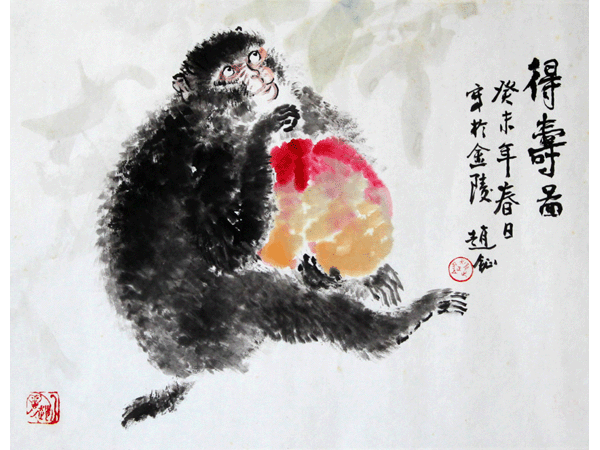 得壽啚
癸未年春日
寫於金陵
趙